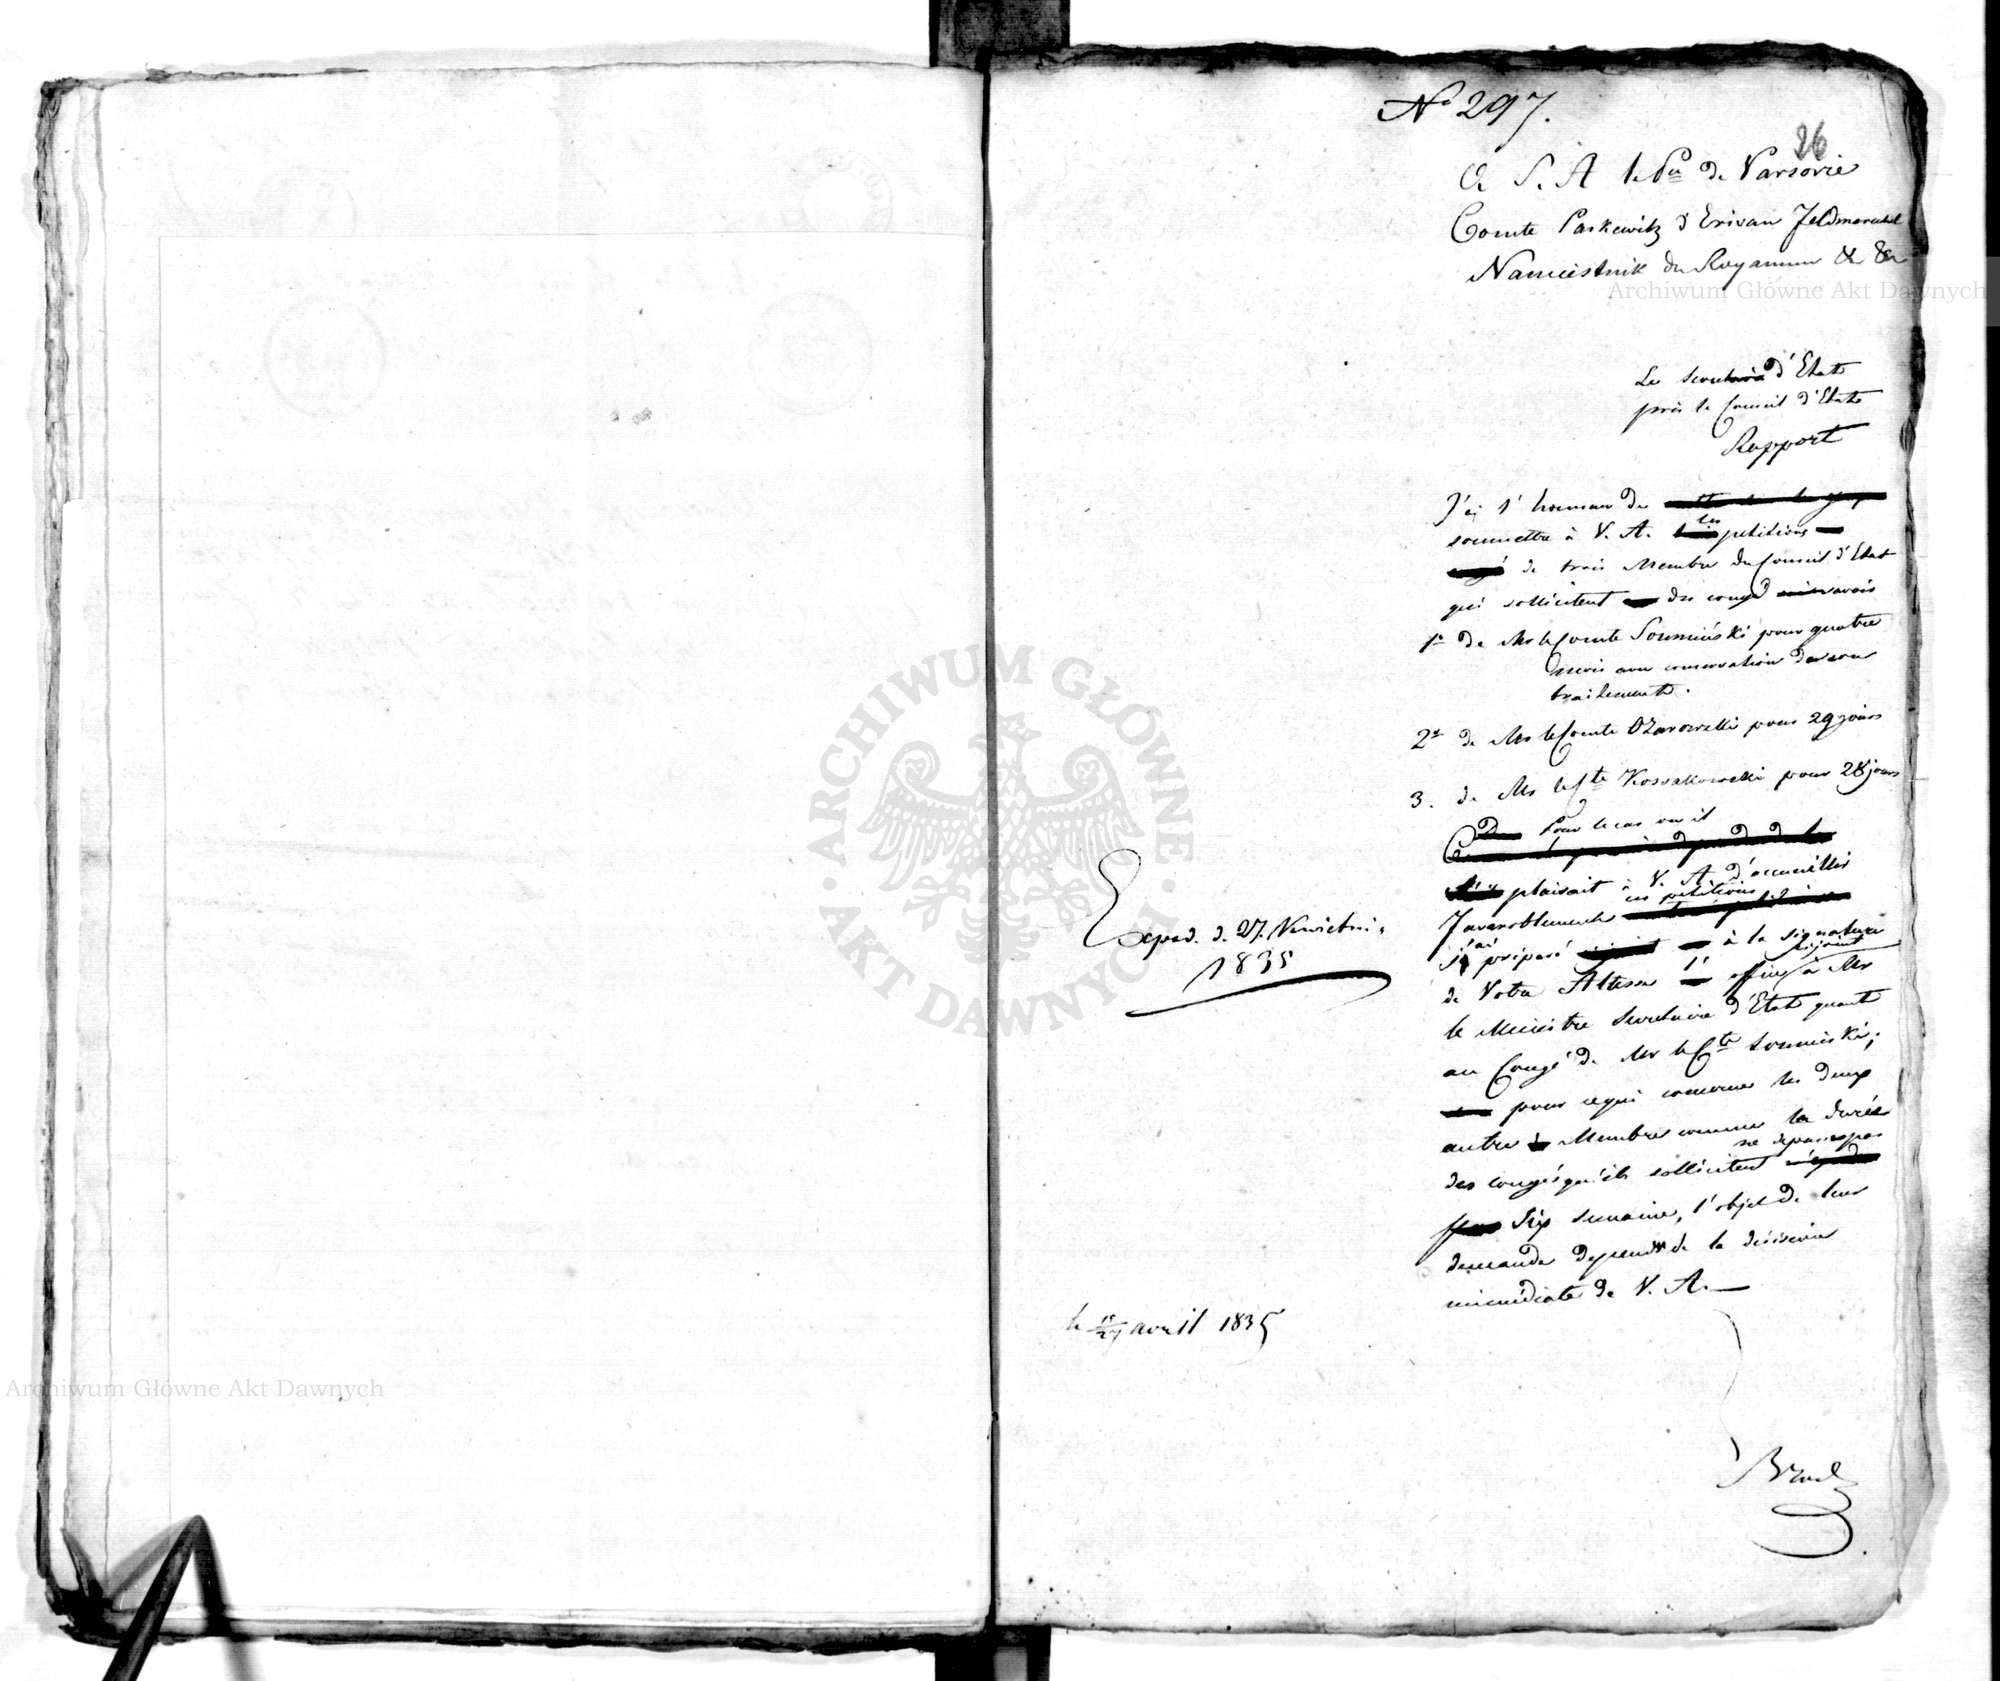 No 297.
26
A S. A le Pce de Varsovie
Comte Paskewitz d'Erivan Feldmarechal
Namiestnik du Royaume &c &c
Archiwum Główne Akt Dawnych
Le Secretaire d'Etat
près le Conseil d'Etat
Rapport
J'ai l'honneur de
soumettre à V. A. les petitions
de trois Membres du Conseil d'Etat
qui sollicitent des congés savoir
1o de Mr le Comte Soumiński pour quatre
mois avec conservation de son
traitement.
2o de Mr le Comte Ożarowski pour 29 jours
3. de Mr le Cte Kossakowski pour 28 jours
Pour le cas où il
plaisait à V. A d'accueillir
favorablement ces petitions
j'ai préparé à la signature
de Votre Altesse l'office ci-joint à Mr
le Ministre Secretaire d'Etat quant
au Congé de Mr le Cte Soumiński;
pour ce qui concerne les deux
autres Membres comme la durée
des congés qu'ils sollicitent ne depasse pas
Six semaines, l'objet de leur
demande depend de la décision
immédiate de V. A.
Exped. d. 27. Kwietnia
1835
le 15/27 avril 1835
ARCHIWUM GŁÓWNE
AKT DAWNYCH
Archiwum Główne Akt Dawnych